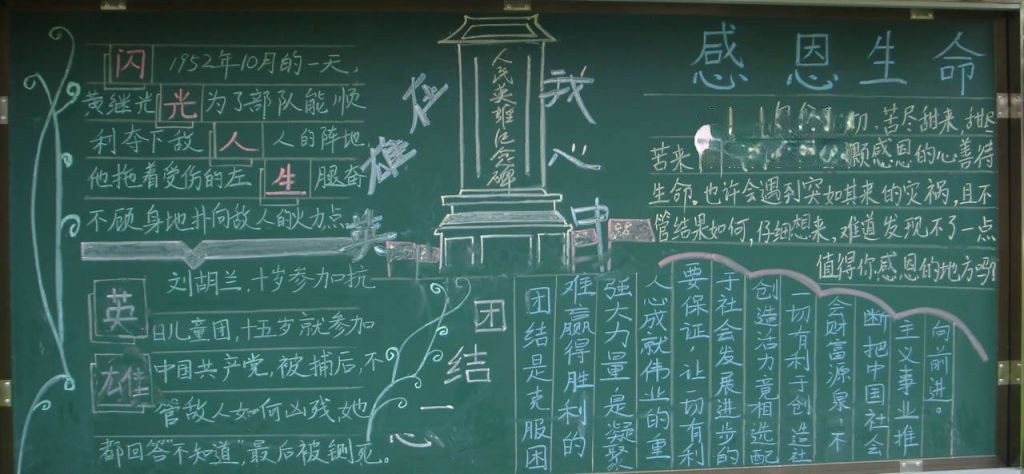 闪 1952年10月的一天,
黄继光 光 为了部队能顺
利夺下敌 人 人的阵地,
他拖着受伤的左 生 腿奋
不顾身地扑向敌人的火力点
英雄在我心中
人民英雄纪念碑
感恩生命
切、苦尽甜来,
苦来 顾感恩的心善待
生命,也许会遇到突如其来的灾祸,且不
管结果如何,仔细想来,难道发现不了一点
值得你感恩的地方吗?
英雄
刘胡兰,十岁参加抗
日儿童团,十五岁就参加
中国共产党,被捕后,不
管敌人如何凶残,她
都回答“不知道”,最后被铡死。
团结一心
团结是克服困
难赢得胜利的
强大力量,是凝聚
人心成就伟业的重
要保证,让一切有利
于社会发展进步的
创造活力竟相迸配
一切有利于创造社
会财富源泉,不
断把中国社会
主义事业推
向前进。